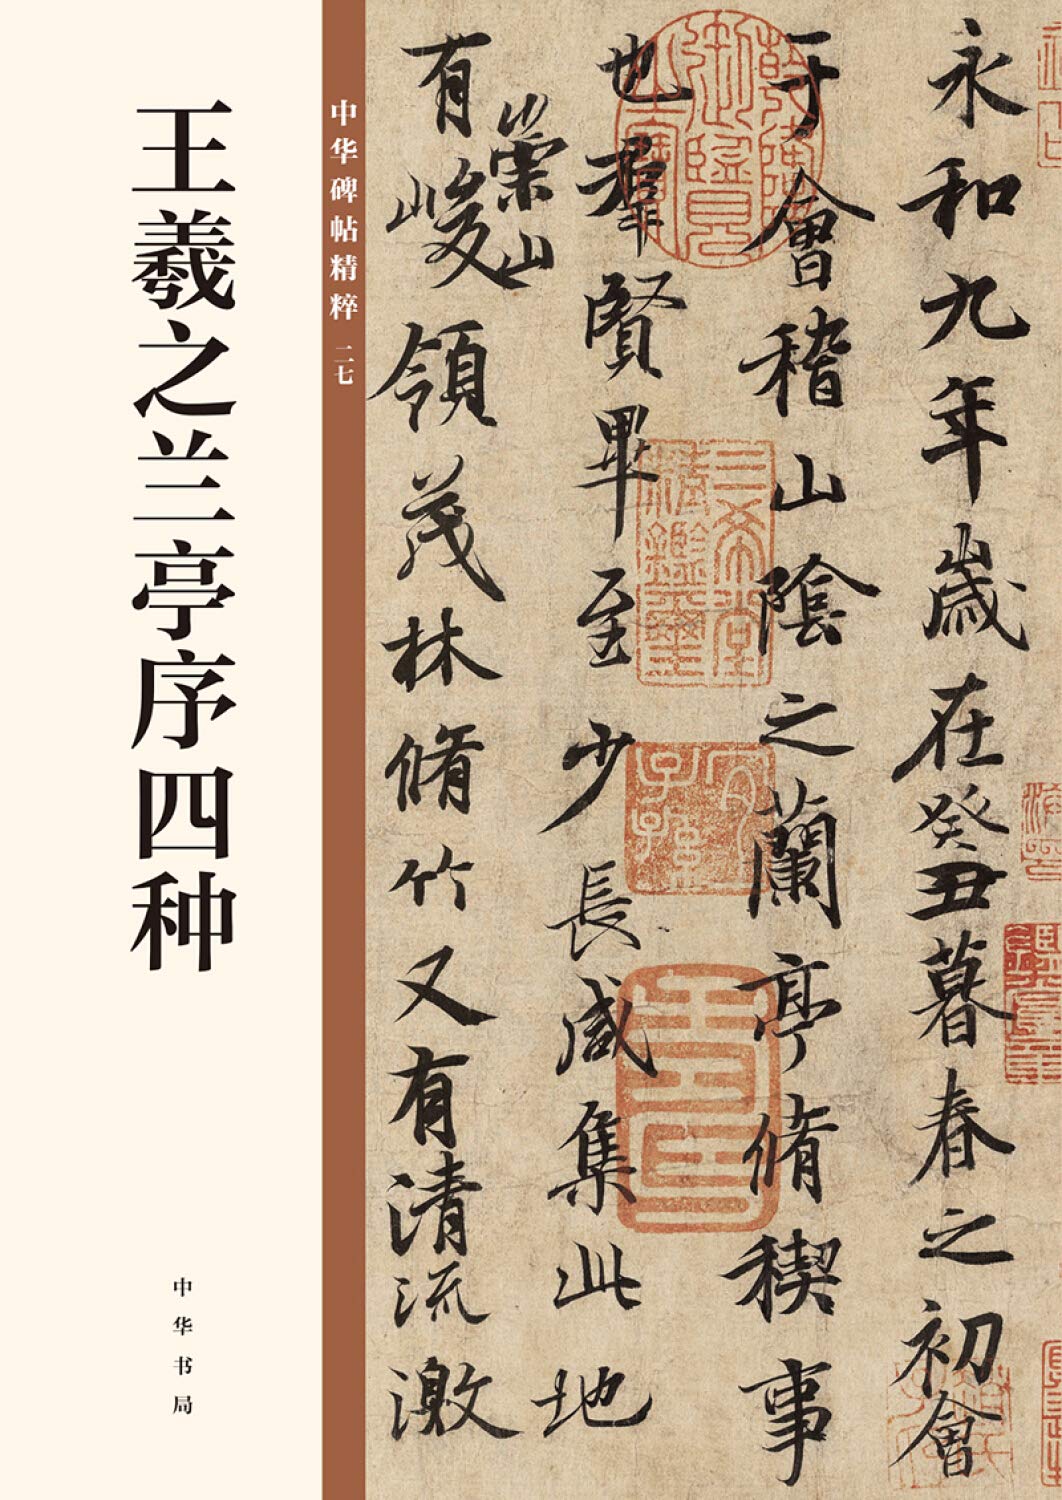 王羲之兰亭序四种
中华书局
中华碑帖精粹 二七
永和九年歲在癸丑暮春之初會
于會稽山陰之蘭亭脩稧事
也羣賢畢至少長咸集此地
有崇山峻領茂林脩竹又有清流激
三希堂精鑑璽
宜子孫